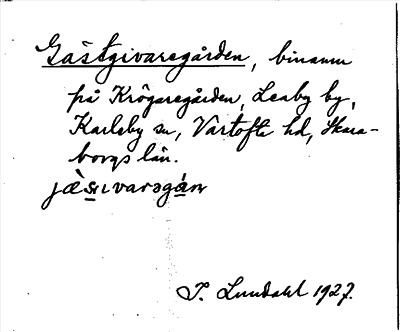 Gästgivaregården, binamn
på Krögaregården, Leaby by,
Karleby sn, Vartofta hd, Skara-
borgs län.
jæ̀sɪvarəgán
I. Lundahl 1927.